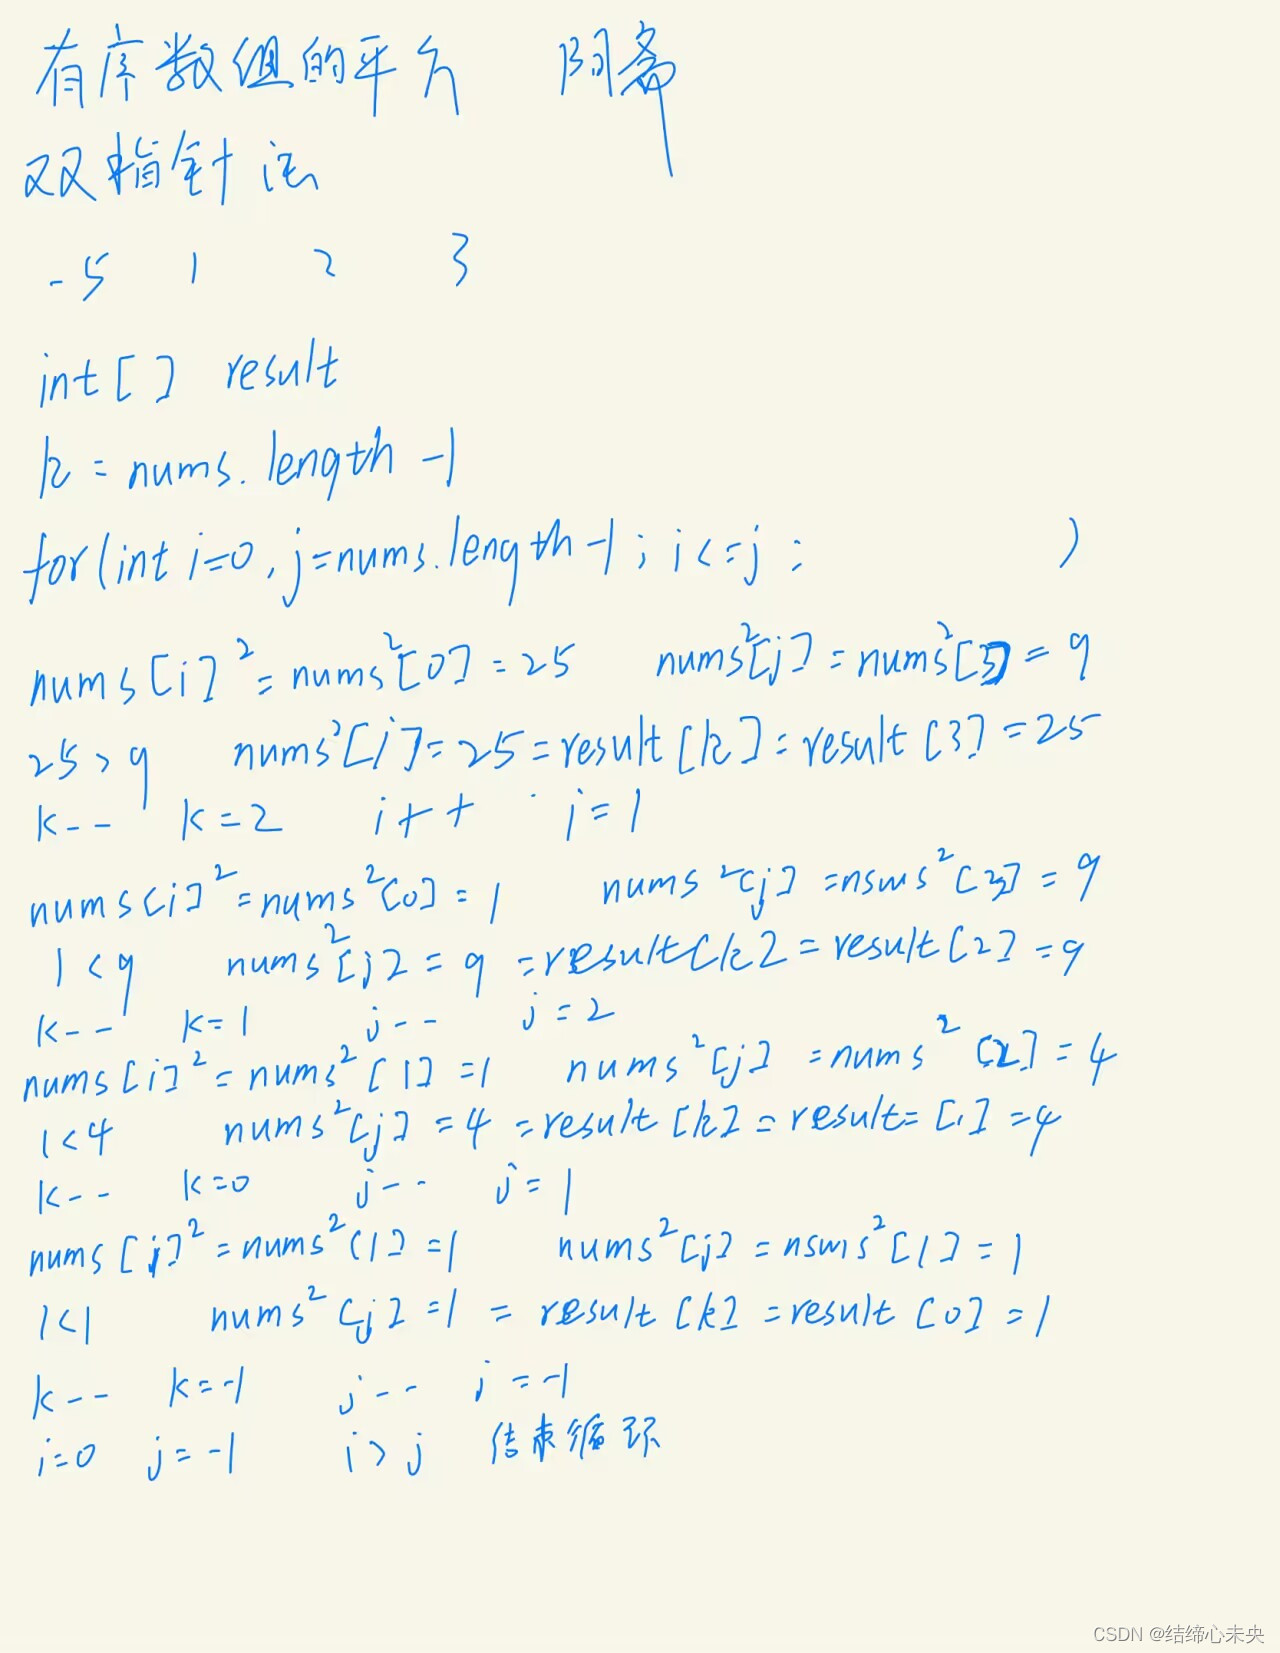 有序数组的平方 阿斋
双指针法
-5 1 2 3
int[] result
k = nums.length -1
for(int i=0, j=nums.length-1; i<=j; )
nums[i]²=nums²[0]=25 nums²[j]=nums²[3]=9
25>9 nums²[i]=25=result[k]=result[3]=25
k-- k=2 i++ i=1
nums[i]²=nums²[0]=1 nums²[j]=nsms²[3]=9
1<9 nums²[j]=9=result[k]=result[2]=9
k-- k=1 j-- j=2
nums[i]²=nums²[1]=1 nums²[j]=nums²[2]=4
1<4 nums²[j]=4=result[k]=result=[1]=4
k-- k=0 j-- j=1
nums[i]²=nums²[1]=1 nums²[j]=nsms²[1]=1
1<1 nums²[j]=1=result[k]=result[0]=1
k-- k=-1 j-- j=-1
i=0 j=-1 i>j 结束循环
CSDN @结缔心未央